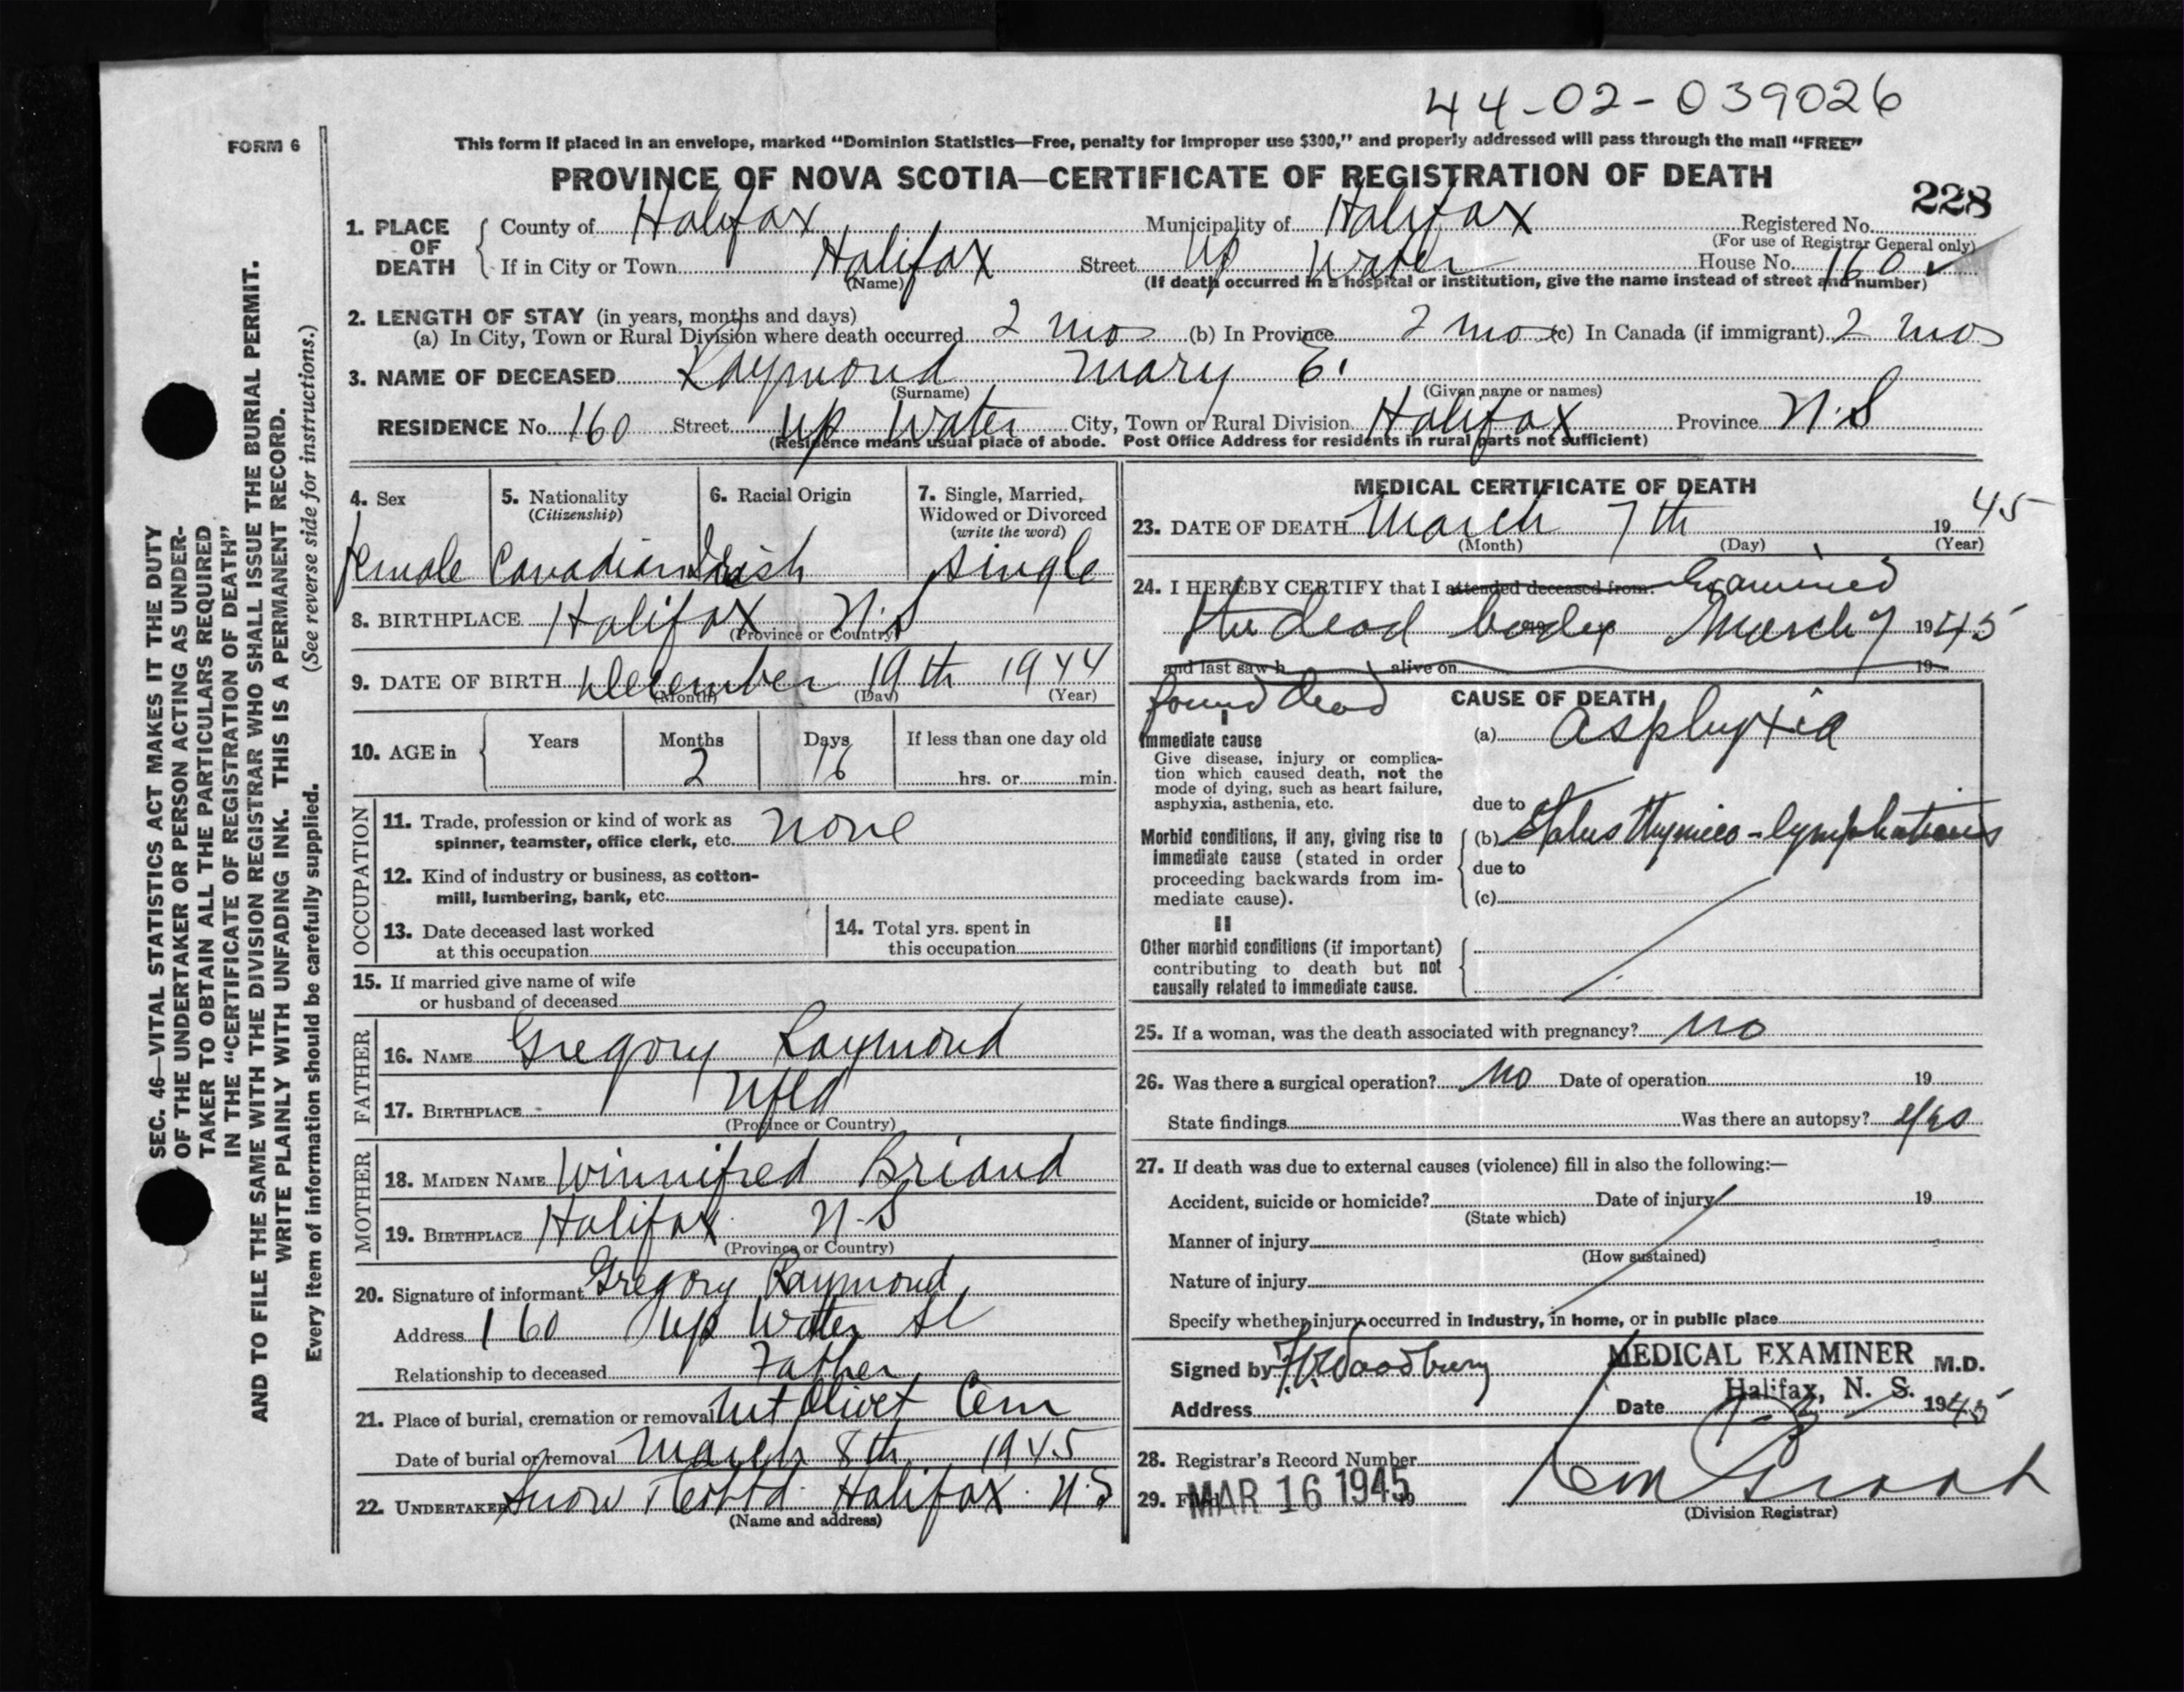 44-02-039026
FORM 6
This form if placed in an envelope, marked "Dominion Statistics—Free, penalty for improper use $300," and properly addressed will pass through the mail "FREE"
PROVINCE OF NOVA SCOTIA—CERTIFICATE OF REGISTRATION OF DEATH
228
1. PLACE OF DEATH
County of Halifax Municipality of Halifax Registered No.
(For use of Registrar General only)
If in City or Town Halifax Street Up Water House No. 160
(Name) (If death occurred in a hospital or institution, give the name instead of street and number)
2. LENGTH OF STAY (in years, months and days)
(a) In City, Town or Rural Division where death occurred 2 mos (b) In Province 2 mos (c) In Canada (if immigrant) 2 mos
3. NAME OF DECEASED Raymond Mary E.
(Surname) (Given name or names)
RESIDENCE No. 160 Street Up Water City, Town or Rural Division Halifax Province N.S
(Residence means usual place of abode. Post Office Address for residents in rural parts not sufficient)
SEC. 46—VITAL STATISTICS ACT MAKES IT THE DUTY
OF THE UNDERTAKER OR PERSON ACTING AS UNDER-
TAKER TO OBTAIN ALL THE PARTICULARS REQUIRED
IN THE "CERTIFICATE OF REGISTRATION OF DEATH"
AND TO FILE THE SAME WITH THE DIVISION REGISTRAR WHO SHALL ISSUE THE BURIAL PERMIT.
WRITE PLAINLY WITH UNFADING INK. THIS IS A PERMANENT RECORD.
Every item of information should be carefully supplied. (See reverse side for instructions.)
4. Sex
female
5. Nationality
(Citizenship)
Canadian
6. Racial Origin
Irish
7. Single, Married,
Widowed or Divorced
(write the word)
single
8. BIRTHPLACE Halifax N.S
(Province or Country)
9. DATE OF BIRTH December 19th 1944
(Month) (Day) (Year)
10. AGE in Years Months Days If less than one day old
2 16 hrs. or min.
OCCUPATION
11. Trade, profession or kind of work as
spinner, teamster, office clerk, etc. none
12. Kind of industry or business, as cotton-
mill, lumbering, bank, etc.
13. Date deceased last worked
at this occupation
14. Total yrs. spent in
this occupation
15. If married give name of wife
or husband of deceased
FATHER
16. NAME Gregory Raymond
17. BIRTHPLACE Nfld
(Province or Country)
MOTHER
18. MAIDEN NAME Winnifred Briand
19. BIRTHPLACE Halifax N.S
(Province or Country)
20. Signature of informant Gregory Raymond
Address 160 Up Water St
Relationship to deceased Father
21. Place of burial, cremation or removal Mt Olivet Cem
Date of burial or removal March 8th 1945
22. UNDERTAKER Snow & Co Ltd. Halifax. N.S
(Name and address)
MEDICAL CERTIFICATE OF DEATH
23. DATE OF DEATH March 7th 1945
(Month) (Day) (Year)
24. I HEREBY CERTIFY that I attended deceased from Examined
the dead body March 7 1945
and last saw h alive on 19
found dead
CAUSE OF DEATH
I
Immediate cause
Give disease, injury or complica-
tion which caused death, not the
mode of dying, such as heart failure,
asphyxia, asthenia, etc.
(a) Asphyxia
due to
Morbid conditions, if any, giving rise to
immediate cause (stated in order
proceeding backwards from im-
mediate cause).
(b) Status thymico-lymphaticus
due to
(c)
II
Other morbid conditions (if important)
contributing to death but not
causally related to immediate cause.
25. If a woman, was the death associated with pregnancy? no
26. Was there a surgical operation? No Date of operation 19
State findings Was there an autopsy? Yes
27. If death was due to external causes (violence) fill in also the following:—
Accident, suicide or homicide? Date of injury 19
(State which)
Manner of injury
(How sustained)
Nature of injury
Specify whether injury occurred in industry, in home, or in public place
Signed by Woodbury MEDICAL EXAMINER M.D.
Halifax, N. S.
Address Date 1945
28. Registrar's Record Number
29. Filed MAR 16 1945 19
(Division Registrar)